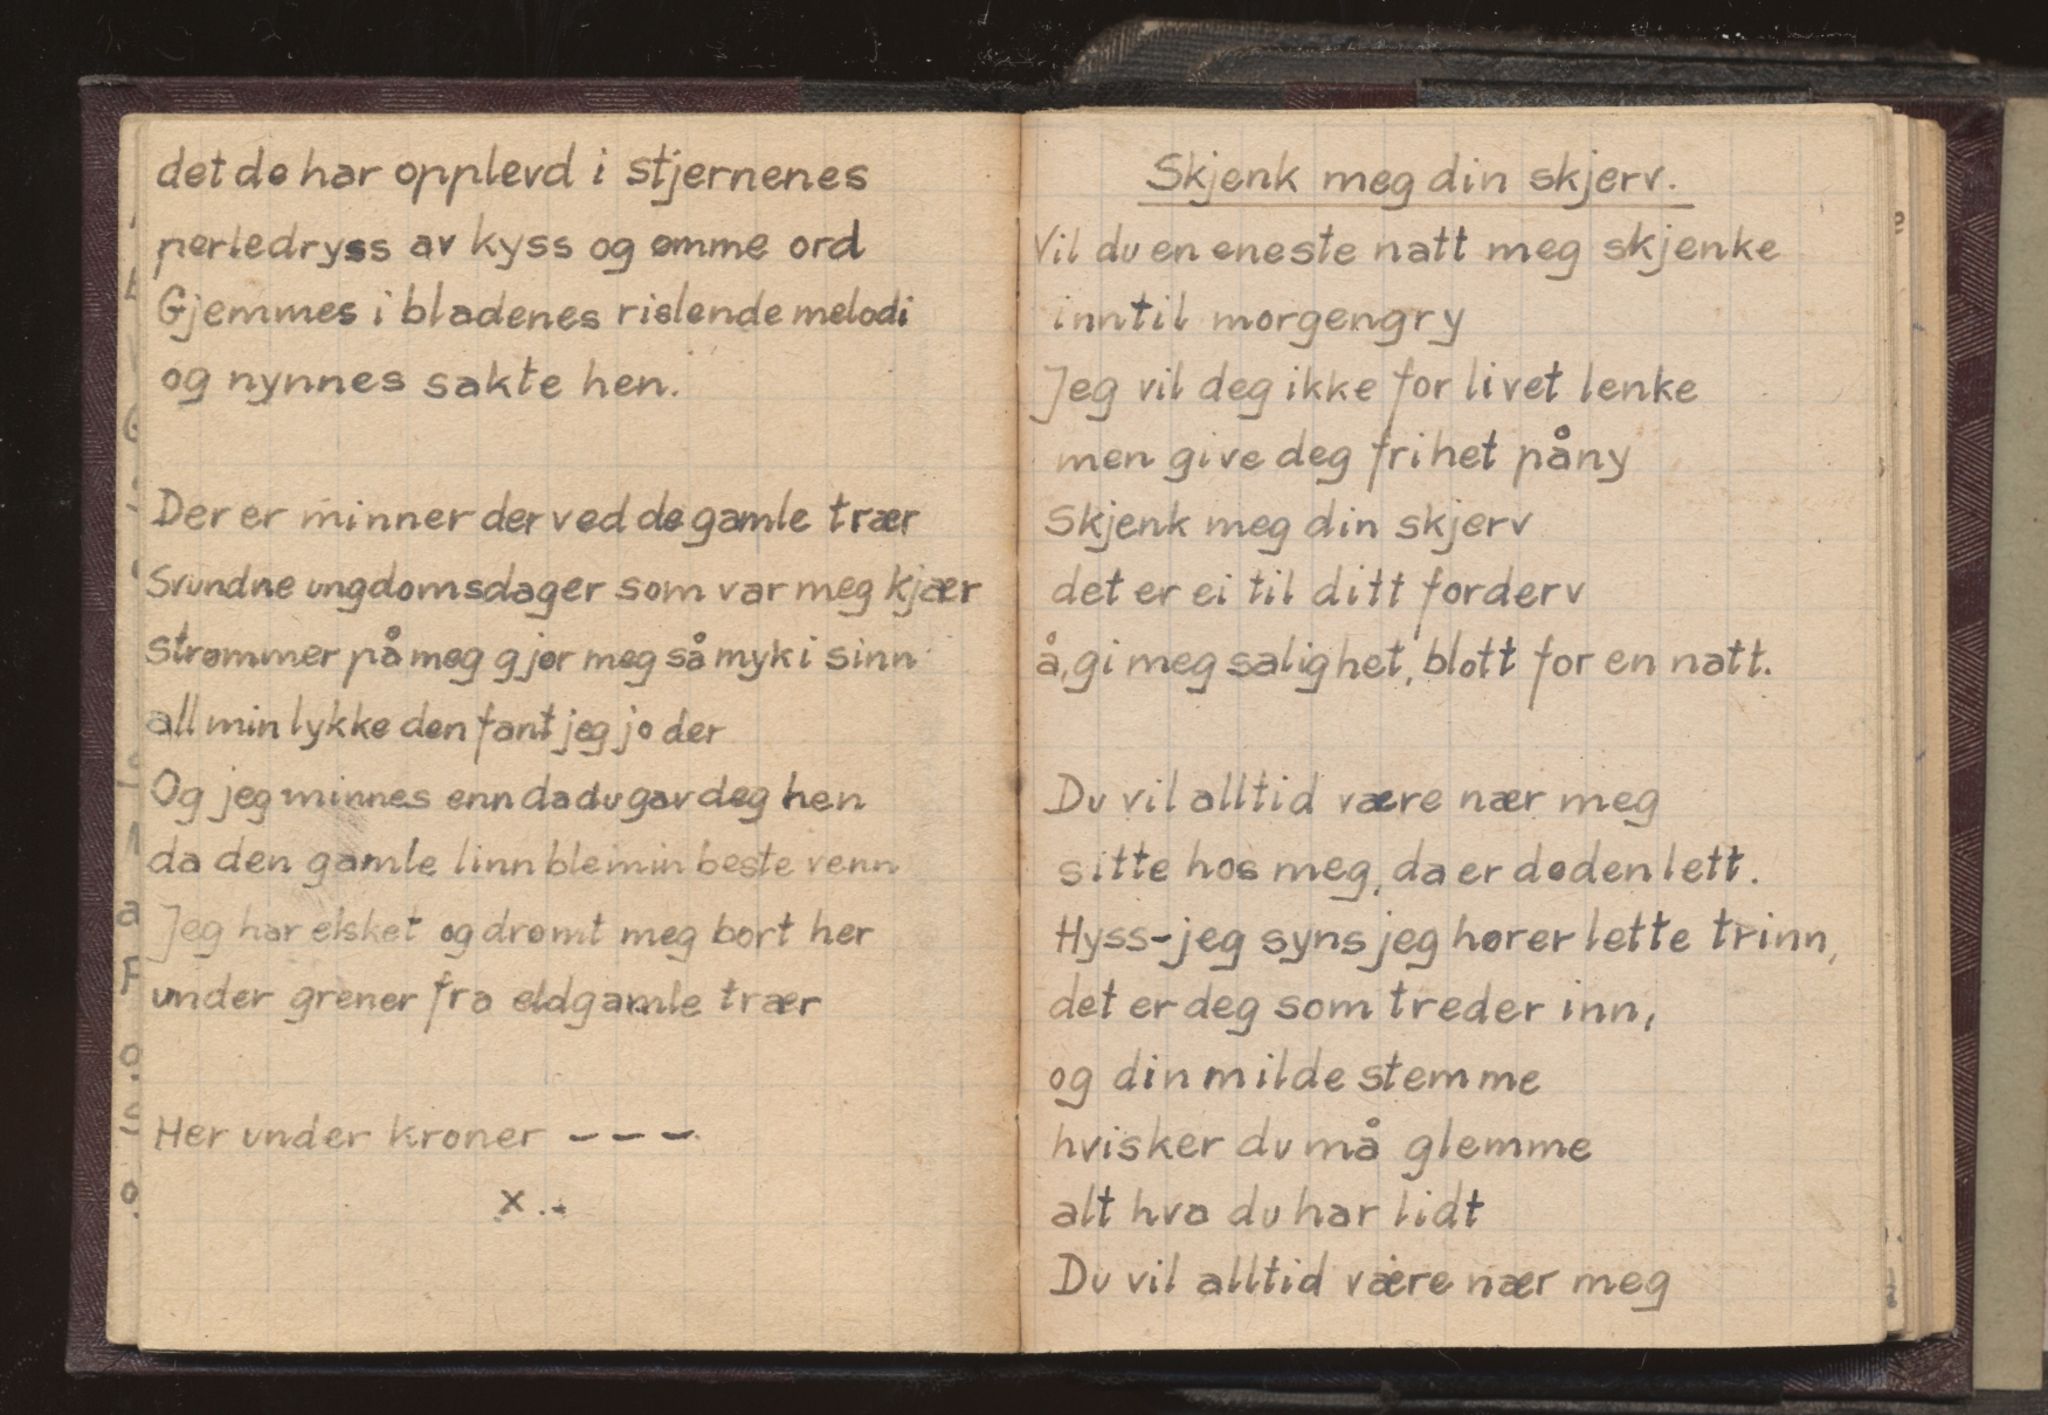 det de har opplevd i stjernenes
perledryss av kyss og ømme ord
Gjemmes i bladenes rislende melodi
og nynnes sakte hen.
Der er minner der ved de gamle trær
Svundne ungdomsdager som var meg kjær
strømmer på meg gjør meg så myk i sinn
all min lykke den fant jeg jo der
Og jeg minnes enn da du gav deg hen
da den gamle linn ble min beste venn
Jeg har elsket og drømt meg bort her
under grener fra eldgamle trær
Her under kroner - - -
x . -
Skjenk meg din skjerv.
Vil du en eneste natt meg skjenke
inntil morgengry
Jeg vil deg ikke for livet lenke
men give deg frihet påny
Skjenk meg din skjerv
det er ei til ditt forderv
å, gi meg salighet, blott for en natt.
Du vil alltid være nær meg
sitte hos meg, da er døden lett.
Hyss-jeg syns jeg hører lette trinn,
det er deg som treder inn,
og din milde stemme
hvisker du må glemme
alt hva du har lidt
Du vil alltid være nær meg